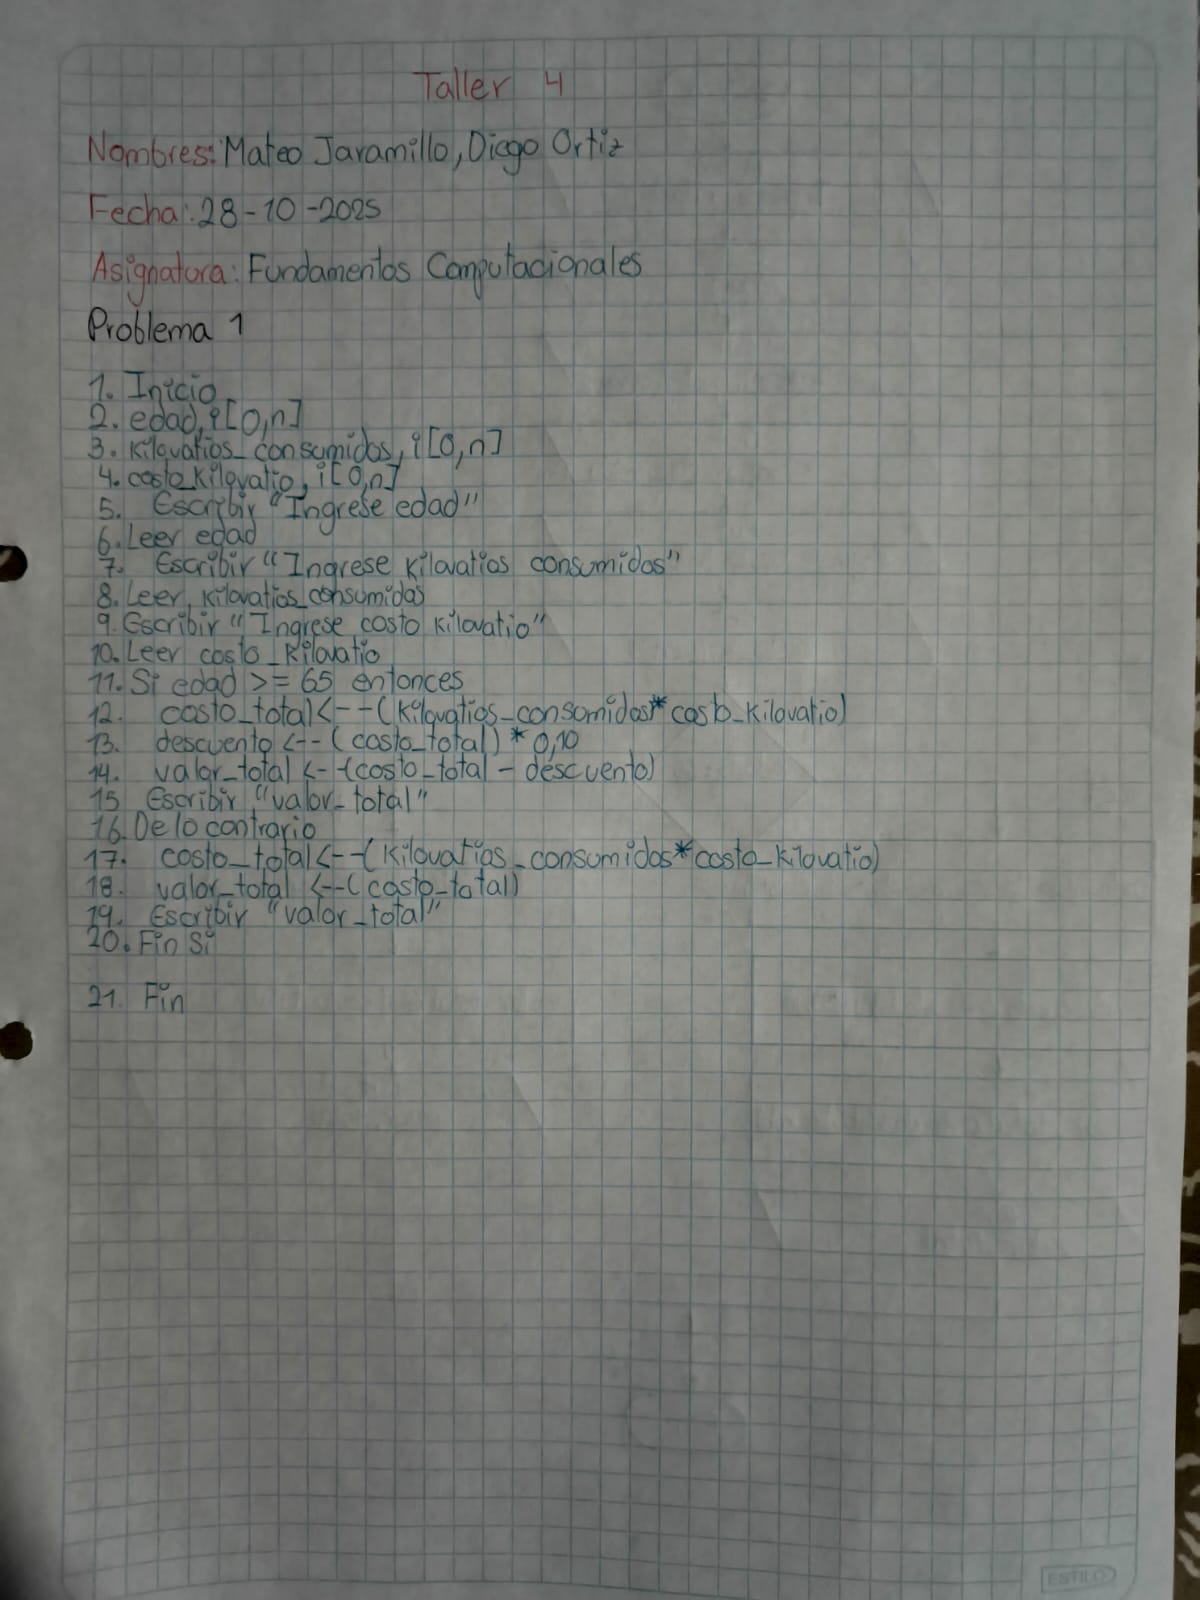 Taller 4
Nombres: Mateo Jaramillo, Diego Ortiz
Fecha: 28-10-2025
Asignatura: Fundamentos Computacionales
Problema 1
1. Inicio
2. edad, i[0,n]
3. Kilovatios_consumidos, i[0,n]
4. costo_Kilovatio, i[0,n]
5. Escribir "Ingrese edad"
6. Leer edad
7. Escribir "Ingrese Kilovatios consumidos"
8. Leer, Kilovatios_consumidos
9. Escribir "Ingrese costo Kilovatio"
10. Leer costo_Kilovatio
11. Si edad >= 65 entonces
12. costo_total <-- (Kilovatios_consumidos*costo_Kilovatio)
13. descuento <-- (costo_total) * 0,10
14. valor_total <--(costo_total - descuento)
15 Escribir "valor_total"
16. De lo contrario
17. costo_total <--(Kilovatios_consumidos*costo_Kilovatio)
18. valor_total <--(costo_total)
19. Escribir "valor_total"
20. Fin Si
21. Fin
ESTILO